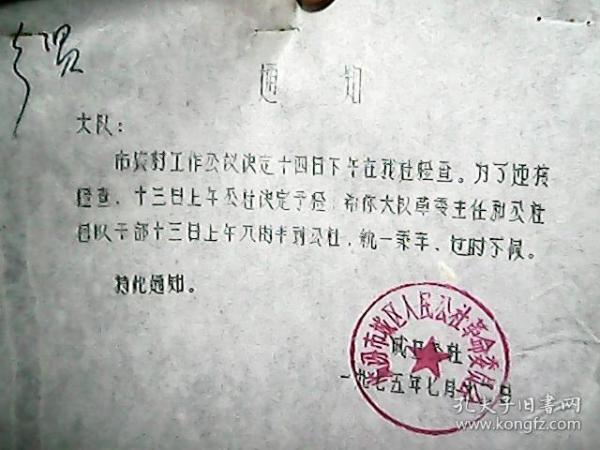 通知
大队:
市农村工作会议决定十四日下午在我社检查。为了迎接
检查,十三日上午公社决定予检,希你大队革委主任和公社
包队干部十三日上午八时半到公社,统一乘车,过时不候。
特此通知。
城区公社
一九七五年七月
市城区人民公社革命委员会
孔夫子旧书网
www.kongfz.com